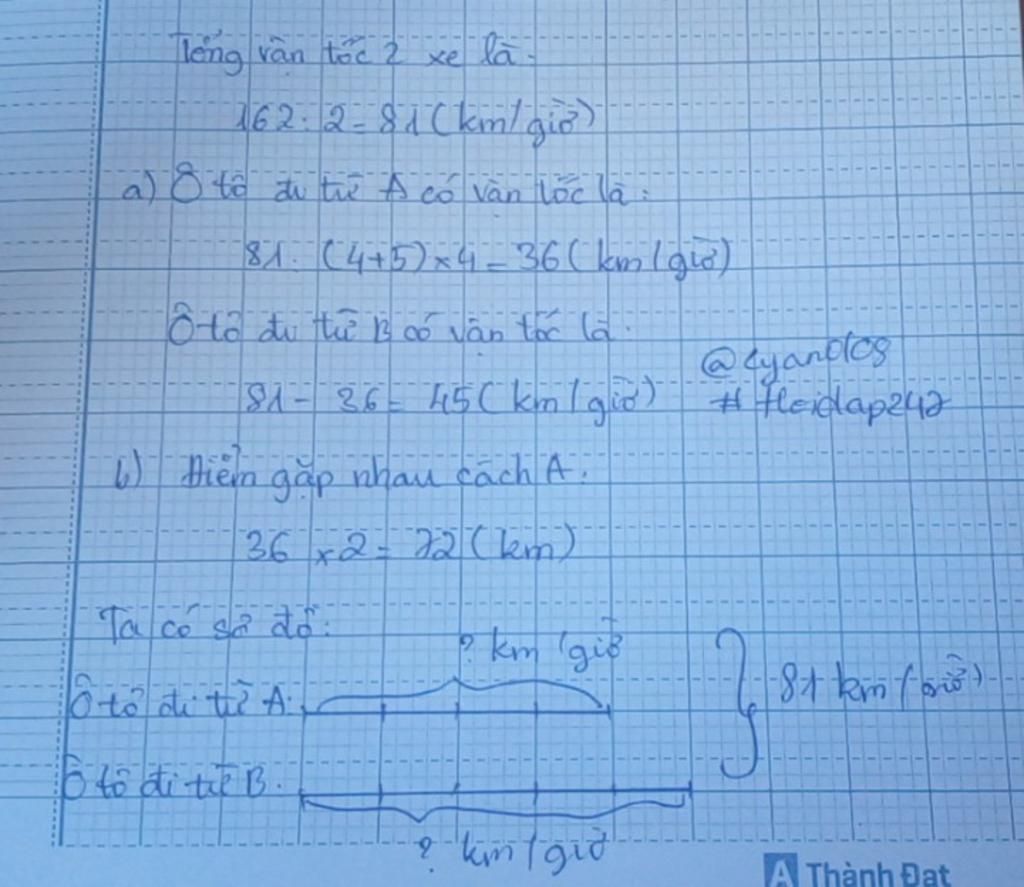 Tổng vận tốc 2 xe là:
162 : 2 = 81 (km/giờ)
a) Ô tô đi từ A có vận tốc là:
81 : (4+5) × 4 = 36 (km/giờ)
Ô tô đi từ B có vận tốc là:
81 - 36 = 45 (km/giờ)
@Cyanolos
# Hoidap247
b) Điểm gặp nhau cách A:
36 × 2 = 72 (km)
Ta có sơ đồ:
? km/giờ
Ô tô đi từ A:
81 km/giờ)
Ô tô đi từ B:
? km/giờ
A Thành Đạt